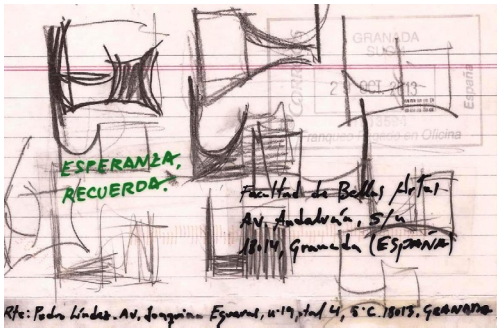 GRANADA
SUC
CORREOS
2 OCT 13
España
Franqueo Pagado en Oficina
ESPERANZA,
RECUERDA.
Facultad de Bellas Artes
Av. Andalucía, S/n
18014, Granada (ESPAÑA)
Rte: Pedro Líndez. Av. Joaquina Eguaras, nº19, 4, 5ºC. 18013. GRANADA